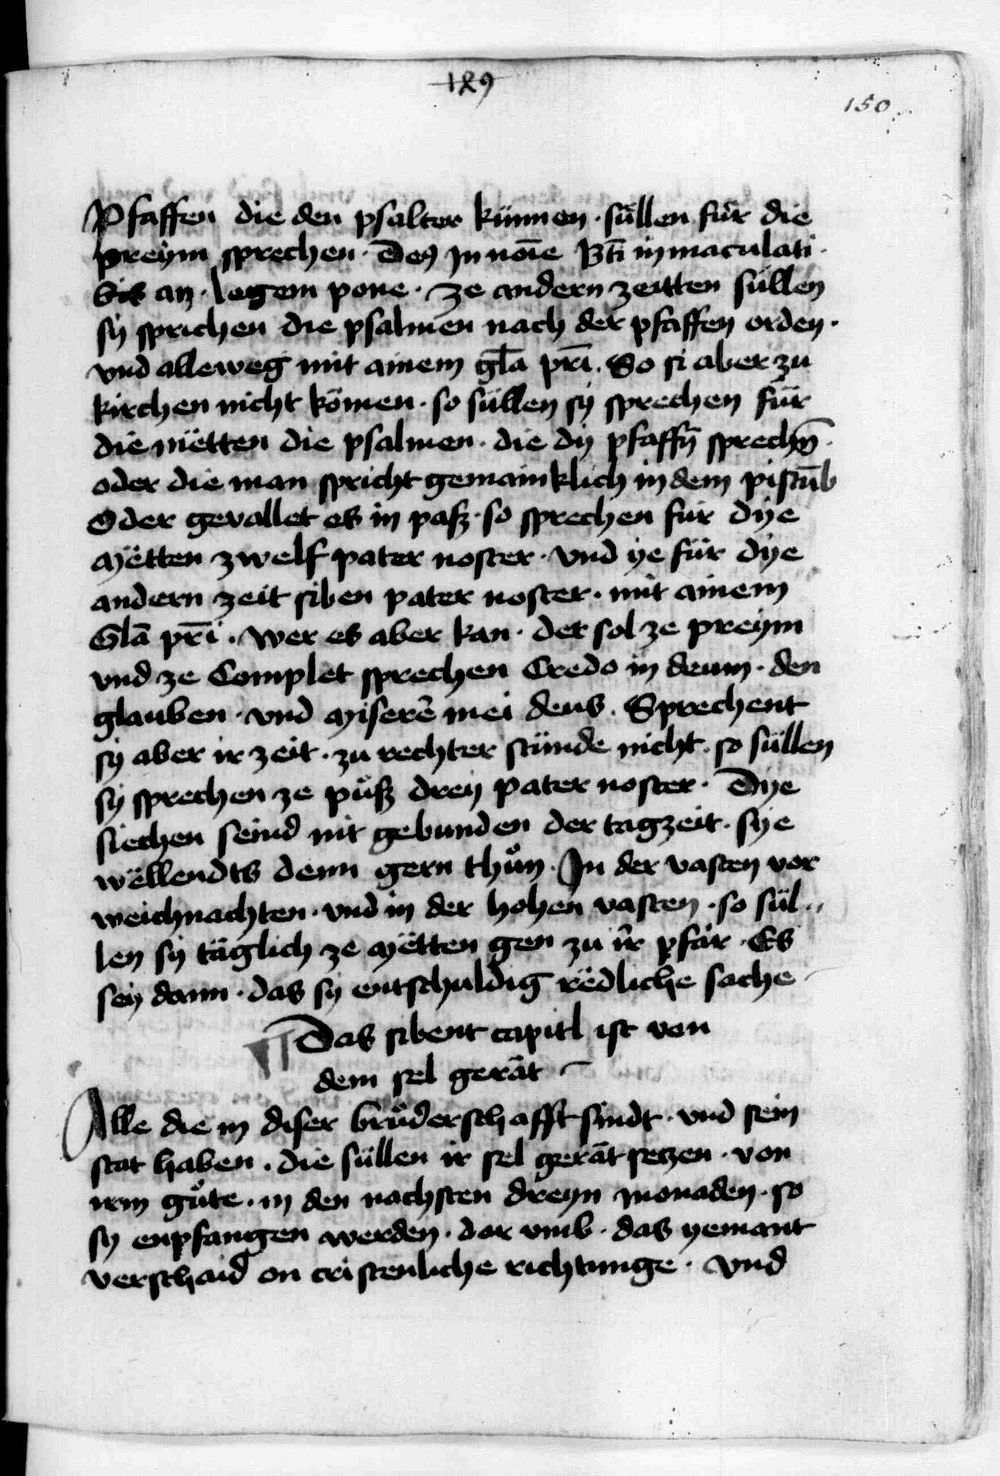 189
150
Pfaffen die den psalter künnen · süllen für die
preym sprechen · De9 In noīe Bt̄i in maculati ·
bis an · Legem pone · ze andern zeitten süllen
sÿ sprichen die psalmen nach der pfaffen orden ·
vnd alleweg mit ainem gl̄a pr̄i. So si aber zu
kirchen nicht kömen · so süllen sÿ sprechen für
die mëtten die psalmen · die dÿ pfaffn̄ sprechn̄ ·
oder die man spricht gemainklich in dem pistūb
Oder gevallet es in paſz · so sprechen für dÿe
Mëtten zwelf pater noster · vnd ÿe für dÿe
andern zeit siben pater noster · mit ainem
Glā pr̄i · wer es aber kan · der sol ze preym
vnd ze Complet sprechen Credo in deum · den
glauben · vnd Miserē mei deus. Sprechent
sÿ aber ir zeit · zu rechter stünde nicht · so süllen
sÿ sprechen ze půſz dreÿ pater noster · Dÿe
siechen seind nit gebunden der tagzeit · sÿe
wëllendts denn gern thůn · In der vasten vor
weichnachten · vnd in der hohen vasten · so sül⸗
len sÿ täglich ze Mëtten gen zu ir pfär · Es
seÿ dann · das sÿ entschuldig rëdliche sache
¶ Das sibent capitl ist von
dem sel gerät
Alle die in diser brůderschafft sindt · vnd sein
stat haben · die süllen ir sel gerät setzen · von
irm gůte · in den nachsten dreyn monaden · so
sÿ enpfangen werden · dar vmb · das yemant
verschaid on cristenliche richtunge · vnd